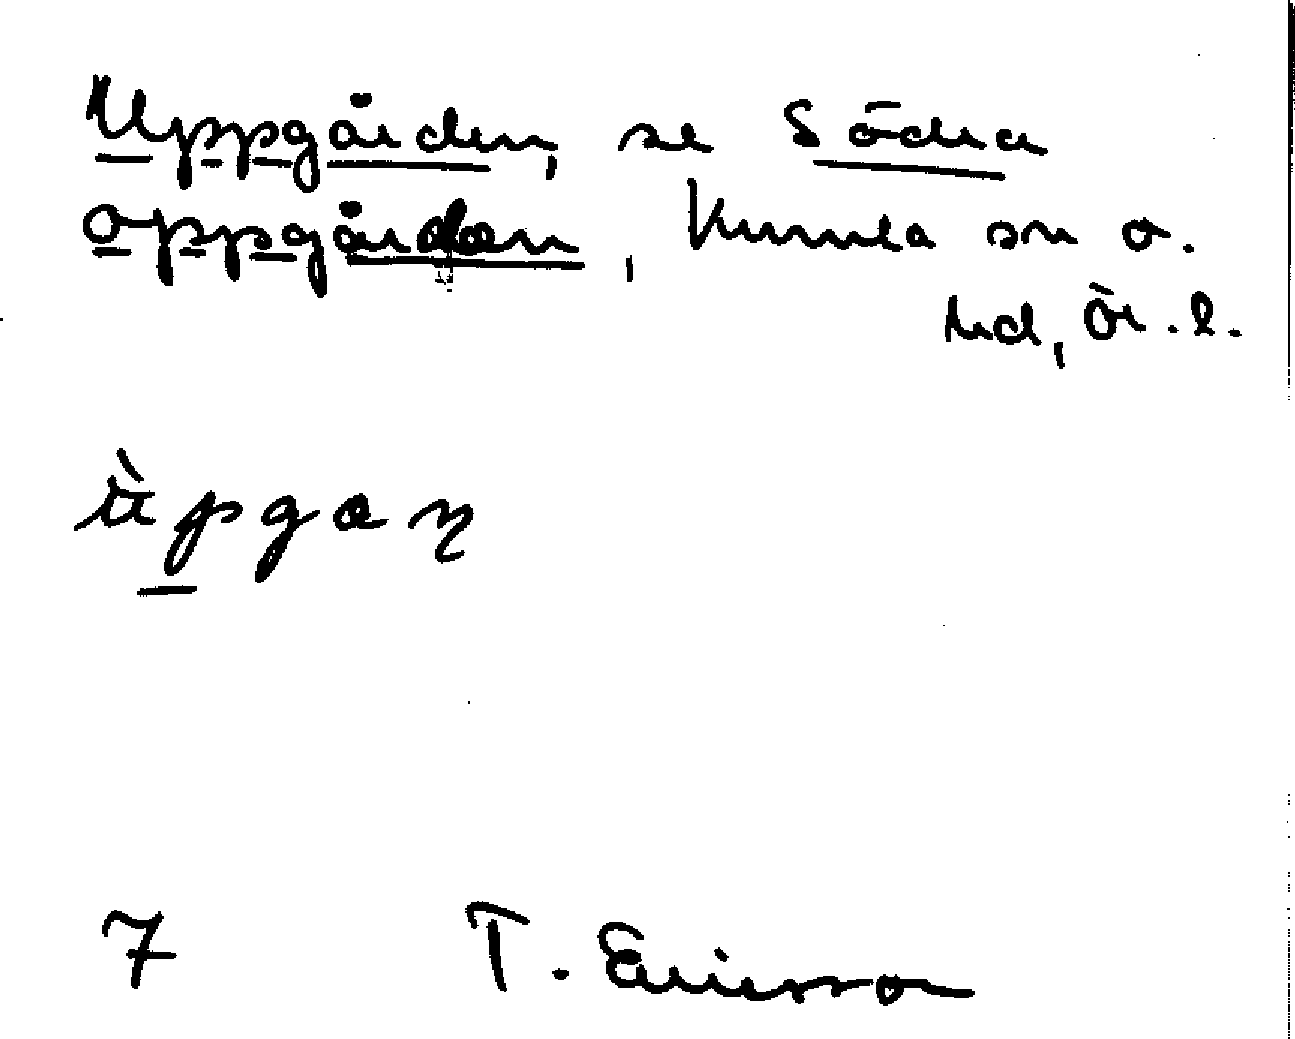 Uppgården, se Södra
oppgården, Kumla sn o.
hd, Ör. l.
7 T. Ericsson